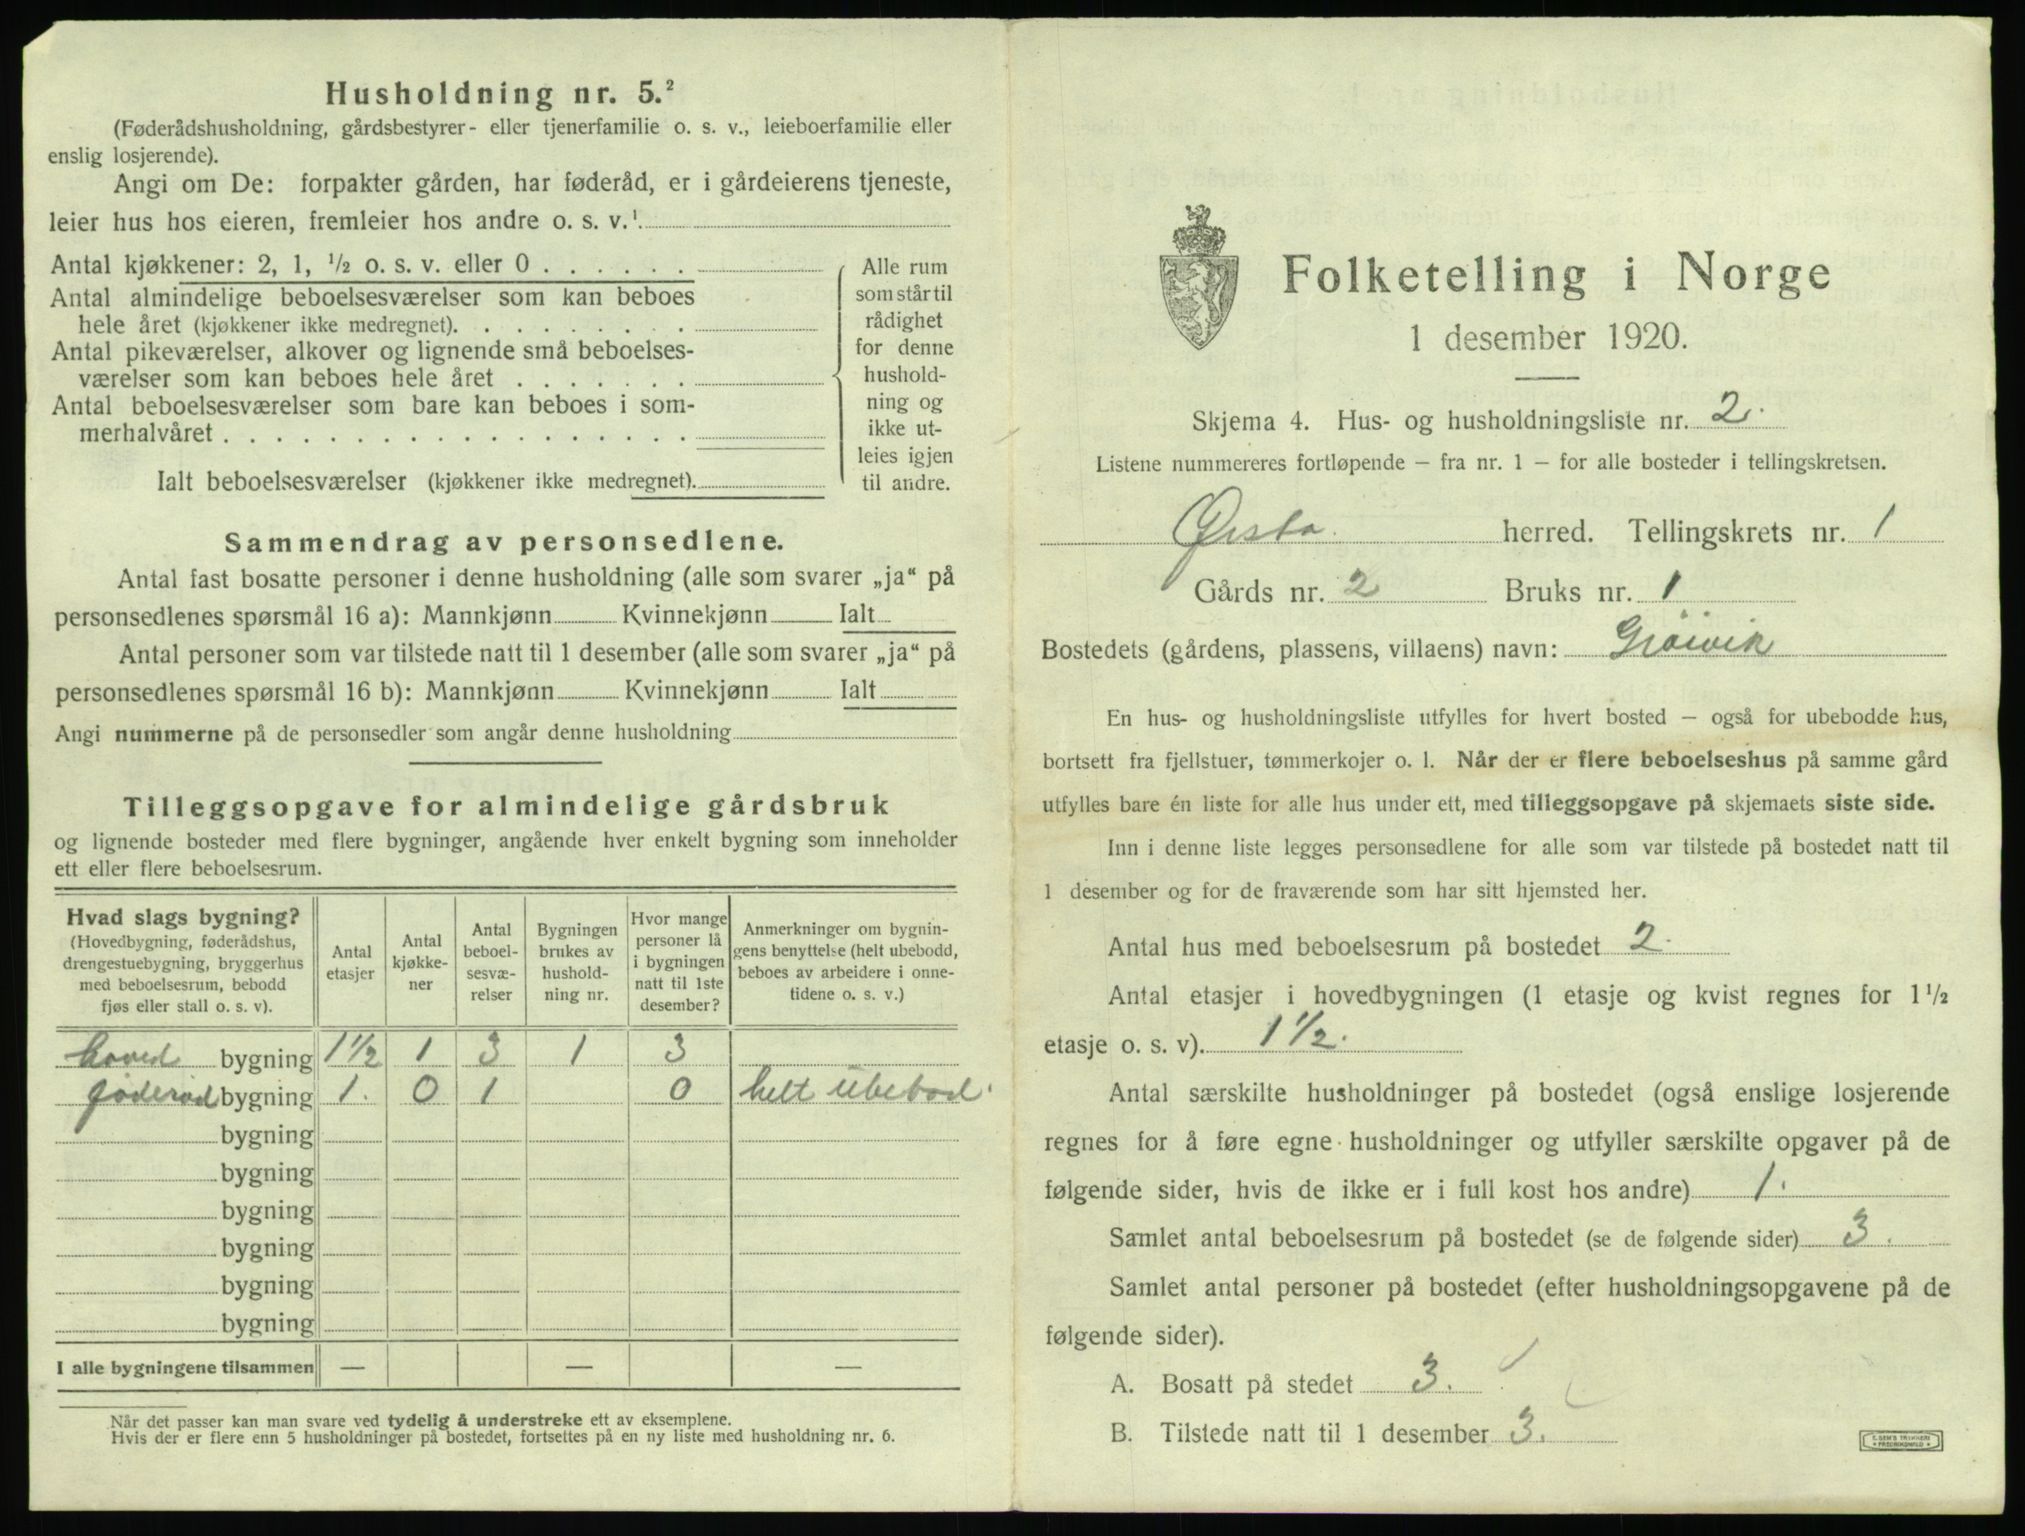 Husholdning nr. 5.²
(Føderådshusholdning, gårdsbestyrer- eller tjenerfamilie o. s. v., leieboerfamilie eller
enslig losjerende).
Angi om De: forpakter gården, har føderåd, er i gårdeierens tjeneste,
leier hus hos eieren, fremleier hos andre o. s. v.¹
Antal kjøkkener: 2, 1, ½ o. s. v. eller 0 . . . . . .
Antal almindelige beboelsesværelser som kan beboes
hele året (kjøkkener ikke medregnet). . . . . . . . .
Antal pikeværelser, alkover og lignende små beboelses-
værelser som kan beboes hele året . . . . . . .
Antal beboelsesværelser som bare kan beboes i som-
merhalvåret . . . . . . . . . . . . . . . . . .
Ialt beboelsesværelser (kjøkkener ikke medregnet).
Alle rum
som står til
rådighet
for denne
hushold-
ning og
ikke ut-
leies igjen
til andre.
Sammendrag av personsedlene.
Antal fast bosatte personer i denne husholdning (alle som svarer „ja“ på
personsedlenes spørsmål 16 a): Mannkjønn Kvinnekjønn Ialt
Antal personer som var tilstede natt til 1 desember (alle som svarer „ja“ på
personsedlenes spørsmål 16 b): Mannkjønn Kvinnekjønn Ialt
Angi nummerne på de personsedler som angår denne husholdning
Tilleggsopgave for almindelige gårdsbruk
og lignende bosteder med flere bygninger, angående hver enkelt bygning som inneholder
ett eller flere beboelsesrum.
Hvad slags bygning?
(Hovedbygning, føderådshus,
drengestuebygning, bryggerhus
med beboelsesrum, bebodd
fjøs eller stall o. s. v).
Antal
etasjer
Antal
kjøkke-
ner
Antal
beboel-
sesvæ-
relser
Bygningen
brukes av
hushold-
ning nr.
Hvor mange
personer lå
i bygningen
natt til 1ste
desember?
Anmerkninger om bygnin-
gens benyttelse (helt ubebodd,
beboes av arbeidere i onne-
tidene o. s. v.)
hoved bygning 1½ 1 3 1 3
føderåd bygning 1. 0 1 0 helt ubebod.
bygning
bygning
bygning
bygning
bygning
bygning
I alle bygningene tilsammen — — —
Når det passer kan man svare ved tydelig å understreke ett av eksemplene.
Hvis der er flere enn 5 husholdninger på bostedet, fortsettes på en ny liste med husholdning nr. 6.
Folketelling i Norge
1 desember 1920.
Skjema 4. Hus- og husholdningsliste nr. 2.
Listene nummereres fortløpende — fra nr. 1 — for alle bosteder i tellingskretsen.
Ørsta herred. Tellingskrets nr. 1
Gårds nr. 2 Bruks nr. 1
Bostedets (gårdens, plassens, villaens) navn: Grøivik
En hus- og husholdningsliste utfylles for hvert bosted — også for ubebodde hus,
bortsett fra fjellstuer, tømmerkojer o. l. Når der er flere beboelseshus på samme gård
utfylles bare én liste for alle hus under ett, med tilleggsopgave på skjemaets siste side.
Inn i denne liste legges personsedlene for alle som var tilstede på bostedet natt til
1 desember og for de fraværende som har sitt hjemsted her.
Antal hus med beboelsesrum på bostedet 2.
Antal etasjer i hovedbygningen (1 etasje og kvist regnes for 1½
etasje o. s. v). 1½.
Antal særskilte husholdninger på bostedet (også enslige losjerende
regnes for å føre egne husholdninger og utfyller særskilte opgaver på de
følgende sider, hvis de ikke er i full kost hos andre) 1.
Samlet antal beboelsesrum på bostedet (se de følgende sider) 3.
Samlet antal personer på bostedet (efter husholdningsopgavene på de
følgende sider).
A. Bosatt på stedet 3.
B. Tilstede natt til 1 desember 3.